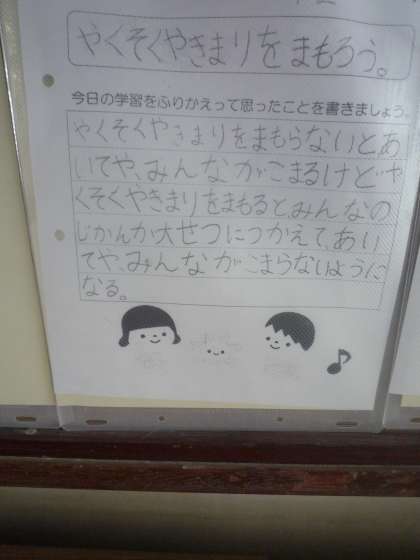 やくそくやきまりをまもろう。
今日の学習をふりかえって思ったことを書きましょう。
やくそくやきまりをまもらないとあ
いてや、みんながこまるけどや
くそくやきまりをまもると、みんなの
じかんが大せつにつかえて、あい
てや、みんながこまらないように
なる。